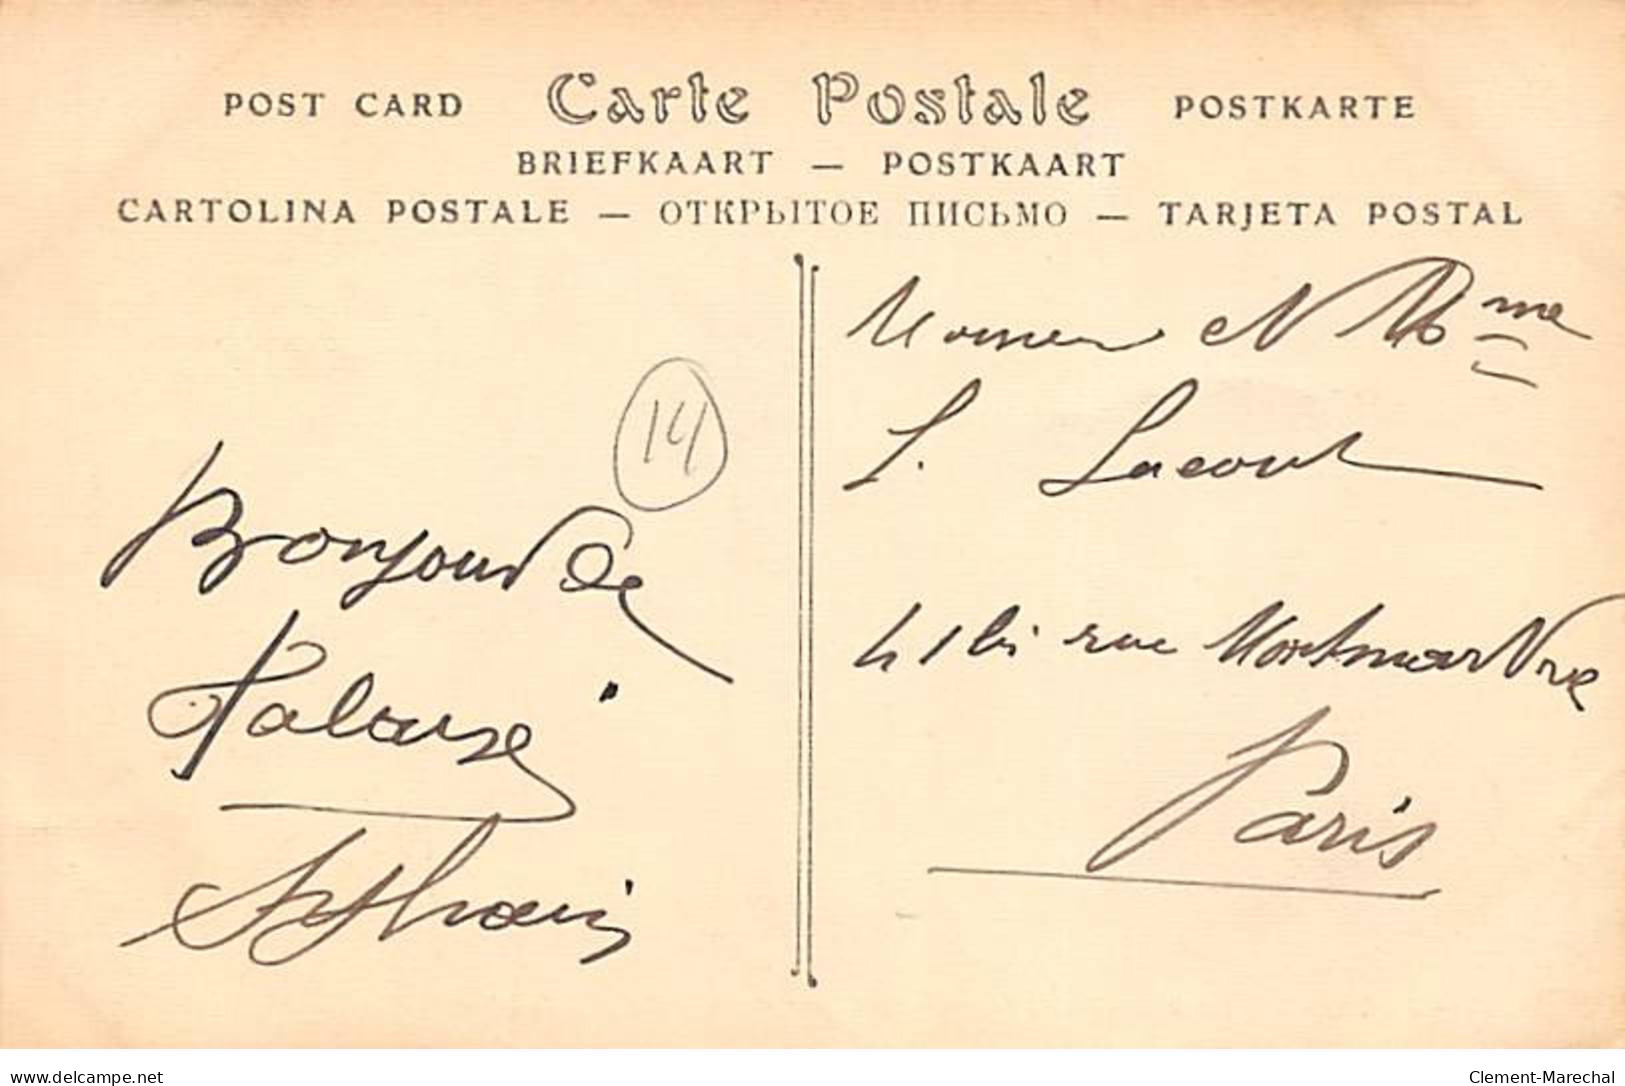 POST CARD Carte Postale POSTKARTE
BRIEFKAART — POSTKAART
CARTOLINA POSTALE — ОТКРЫТОЕ ПИСЬМО — TARJETA POSTAL
14
Bonjour de
Falaise
et Mme
Lacour
41 bis rue Montmartre
Paris
www.delcampe.net
Clement-Marechal